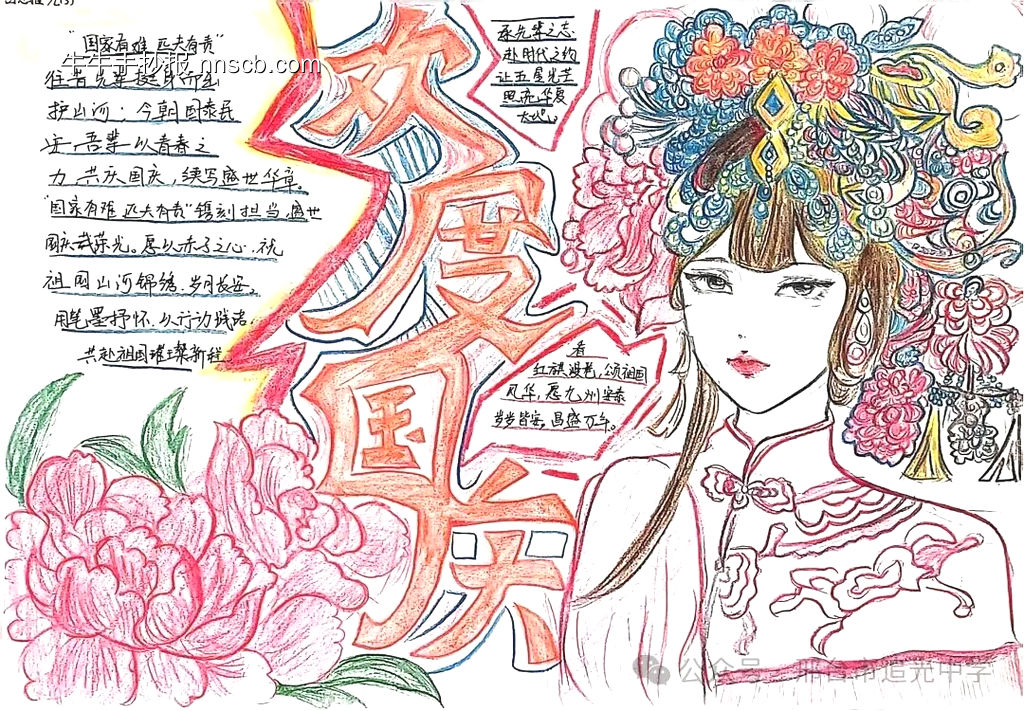 "国家有难 匹夫有责"
往昔先辈挺身而出
护山河；今朝国泰民
安 吾辈以青春之
力 共庆国庆，续写盛世华章。
"国家有难 匹夫有责"镌刻担当 盛世
国庆载荣光。愿以赤子之心，祝
祖国山河锦绣，岁月长安。
用笔墨抒怀 以行动践诺，
共赴祖国璀璨新程
欢度国庆
承先辈之志
赴时代之约
让五星光芒
照亮华夏
大地
看
红旗漫卷，颂祖国
风华，愿九州安泰
岁岁皆安，昌盛万年。
nnscb.com
公众号 · 邢台市追光中学